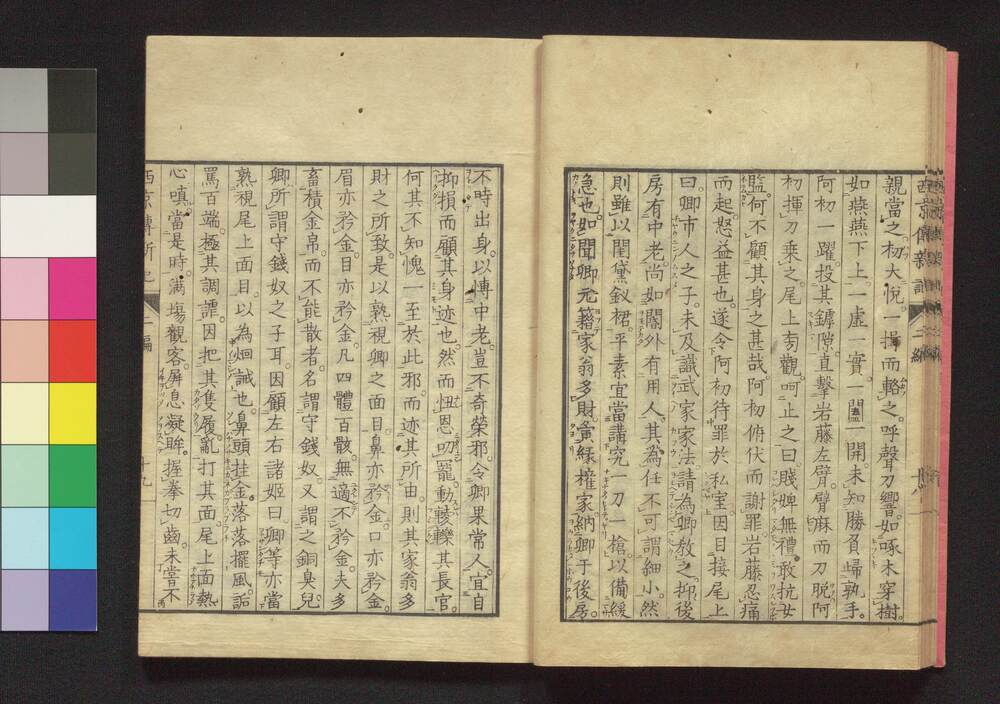 親當之。初大悅一揖而輅之。呼聲刀響。如啄木穿樹。
如燕燕下上。一虛一實。一闔一開。未知勝負歸孰手。
阿初一躍。投其罅隙。直擊岩藤左臂。臂麻而刀脫。阿
初揮刀乘之。尾上旁觀。呵止之曰。賤婢無禮。敢抗女
監。何不顧其身之甚哉。阿初俯伏而謝罪。岩藤忍痛
而起。怒益甚也。遂令阿初待罪於私室。因目接尾上
曰。卿市人之子。未及識武家家法。請為卿教之。抑後
房有中老。尚如閫外有用人。其為任不可謂細小。然
則雖以閨黛釵裙。平素宜當講究一刀一槍。以備緩
急也。如聞卿元籍家翁多財。夤緣權家。納卿于後房。
西京傳新記 二編 十八
不時出身。以博中老。豈不奇榮邪。令卿果常人。宜自
抑損而顧其身迹也。然而忸恩叨寵。動輘轢其長官。
何其不知愧一至於此邪。而迹其所由。則其家翁多
財之所致。是以熟視卿之面目。鼻亦矜金。口亦矜金。
眉亦矜金。目亦矜金。凡四體百骸。無適不矜金。夫多
畜積金帛。而不能散者。名謂守錢奴。又謂之銅臭兒。
卿所謂守錢奴之子耳。因顧左右諸姬曰。卿等亦當
熟視尾上面目。以為炯誡也。鼻頭挂金。落落擺風。詬
罵百端。極其調謔。因把其隻履。亂打其面。尾上面熱
心嗔。當是時。滿場觀客。屏息凝眸。握拳切齒。未嘗不
西京傳新記 二編 十九